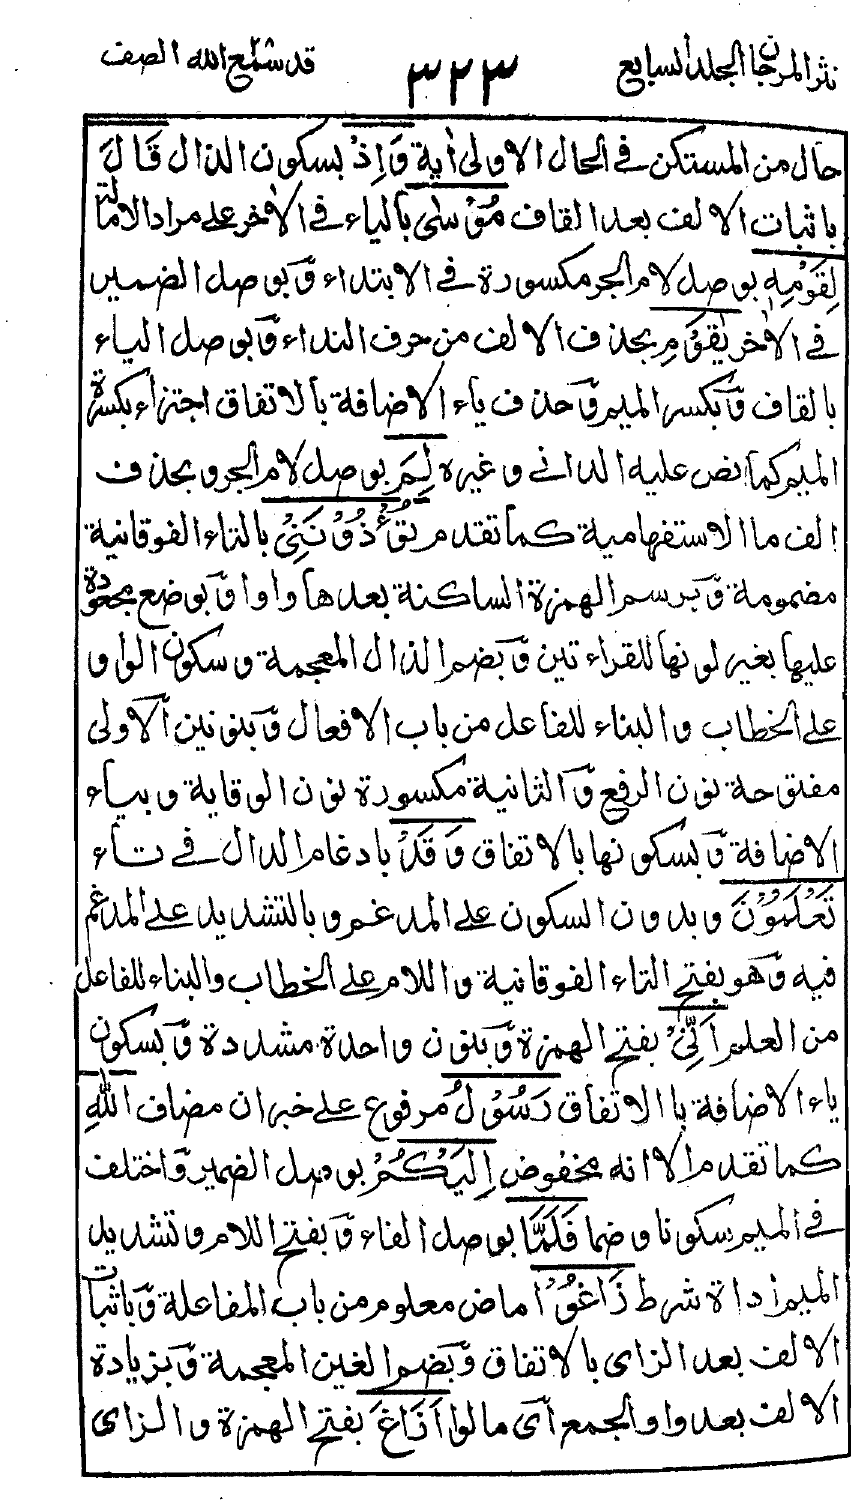 نثر المرجان الجلد السابع
٣٢٣
قد سمع الله ٢٨ الصف
حال من المستكن في الحال الاولى أية وَاِذْ بسكون الذال قَالَ
باثبات الالف بعد القاف مُوْسٰى بالياء في الأخر على مراد الامالة
لِقَوْمِهٖ بوصل لام الجر مكسورة في الابتداء وَبوصل الضمير
في الأخر يٰقَوْمِ بحذف الالف من حرف النداء وَبوصل الياء
بالقاف وَبكسر الميم وَحذف ياء الاضافة بالاتفاق اجتزاء بكسرة
الميم كما نص عليه الداني وغيره لِمَ بوصل لام الجر وبحذف
الف ما الاستفهامية كما تقدم تُؤْذُوْنَنِيْ بالتاء الفوقانية
مضمومة وَبرسم الهمزة الساكنة بعدها واوا وَبوضع مجعودة
عليها بغير لونها للقراءتين وَبضم الذال المعجمة وسكون الواو
على الخطاب والبناء للفاعل من باب الافعال وَبنونين اَلاولى
مفتوحة نون الرفع وَالثانية مكسورة نون الوقاية وبياء
الاضافة وَبسكونها بالاتفاق وَقَدْ بادغام الدال في تاء
تَعْلَمُوْنَ وبدون السكون على المدغم وبالتشديد على المدغم
فيه وَهو بفتح التاء الفوقانية واللام على الخطاب والبناء للفاعل
من العلم اَنِّيْ بفتح الهمزة وَبنون واحدة مشددة وَبسكون
ياء الاضافة بالاتفاق رَسُوْلُ مرفوع على خبر ان مضاف اللهِ
كما تقدم الا انه مخفوض اِلَيْكُمْ بوصل الضمير وَاختلف
في الميم سكونا وضما فَلَمَّا بوصل الفاء وَبفتح اللام وتشديد
الميم اداة شرط زَاغُوْا ماض معلوم من باب المفاعلة وَباثبات
الالف بعد الزاى بالاتفاق وَبضم الغين المعجمة وَبزيادة
الالف بعد واو الجمع اَى مالوا اَزَاغَ بفتح الهمزة والزاى